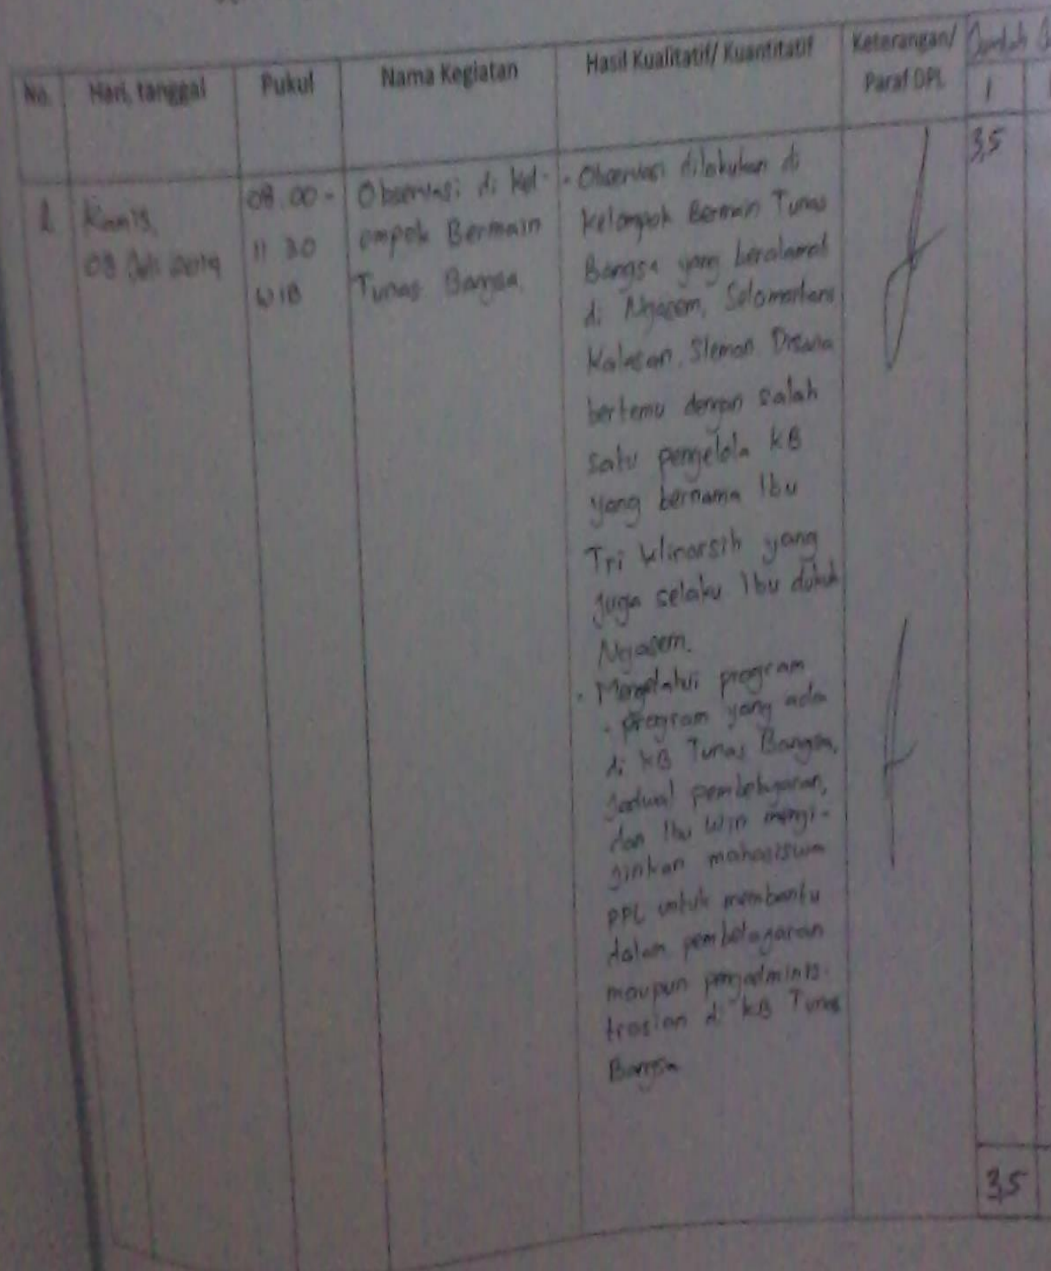 No.
Hari, tanggal
Pukul
Nama Kegiatan
Hasil Kualitatif/ Kuantitatif
Keterangan/
Paraf DPL
Jumlah
1
Kamis,
08
08.00 -
11 30
WIB
Observasi di Kel-
ompok Bermain
Tunas Bangsa
- Observasi dilakukan di
Kelompok Bermain Tunas
Bangsa yang beralamat
di Ngasem, Selomartani
Kalasan, Sleman. Disana
bertemu dengan salah
satu pengelola KB
yang bernama Ibu
Tri Winarsih yang
juga selaku Ibu dukuh
Ngasem.
- Mengetahui program
- program yang ada
di KB Tunas Bangsa,
Jadwal pembelajaran,
dan Ibu Win mengi-
ginkan mahasiswa
PPL untuk membantu
dalam pembelajaran
maupun pengadminis-
trasian di KB Tunas
Bangsa
3,5
3,5